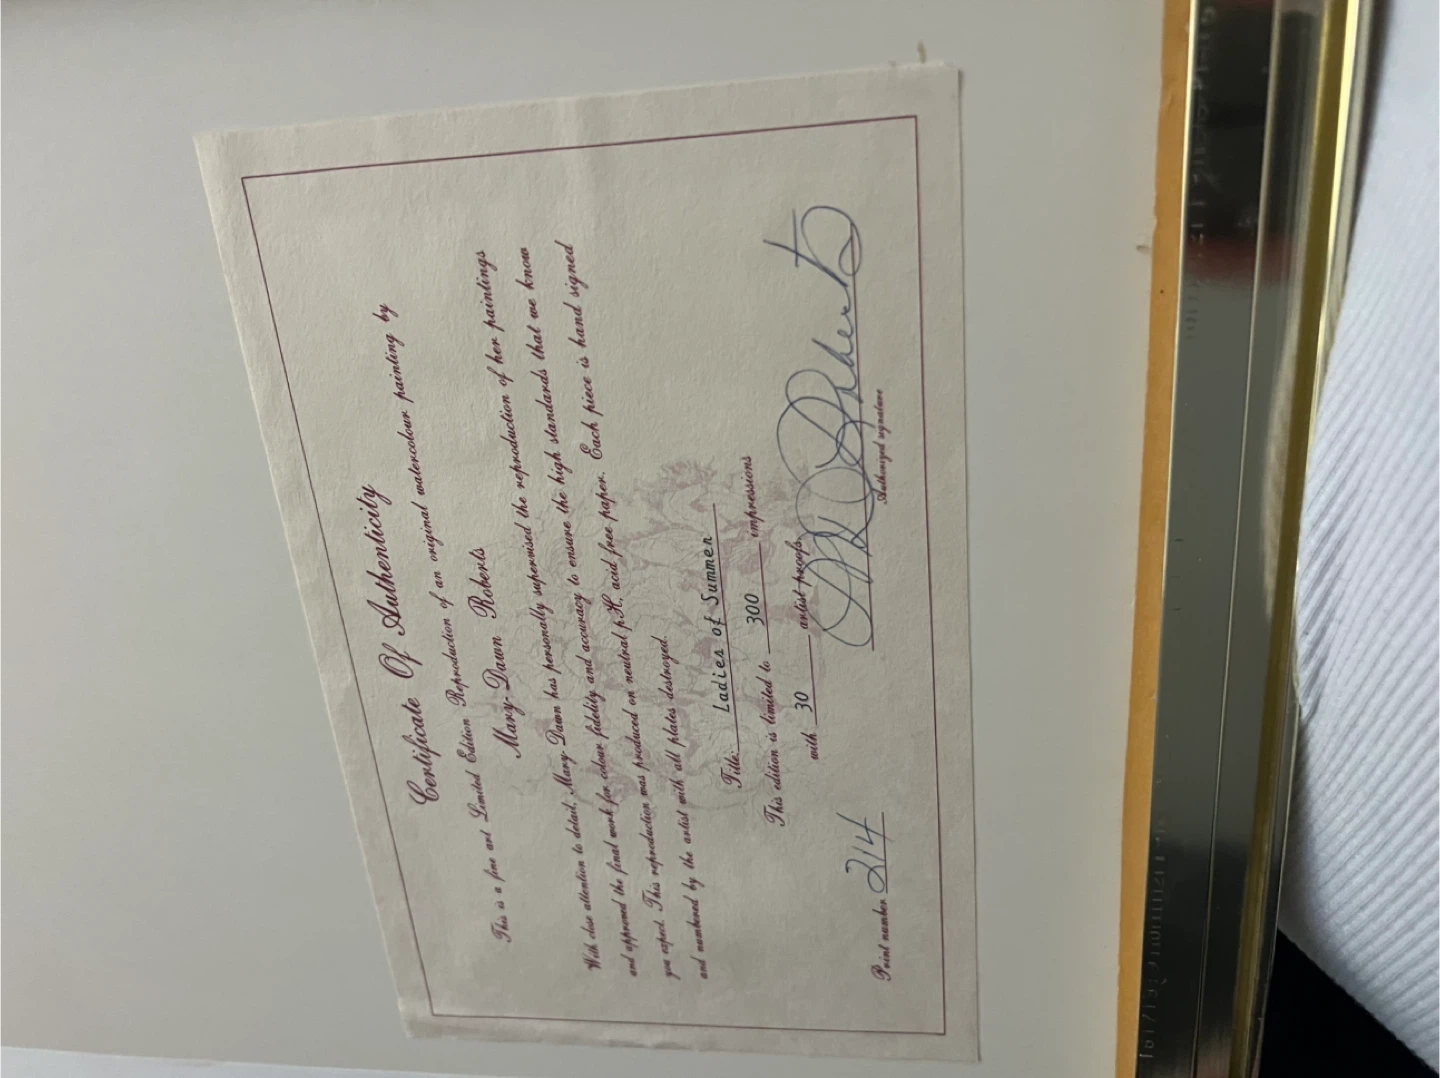 Certificate Of Authenticity
This is a fine art Limited Edition Reproduction of an original watercolour painting by
Mary-Dawn Roberts
With close attention to detail, Mary-Dawn has personally supervised the reproduction of her paintings
and approved the final work for colour fidelity and accuracy to ensure the high standards that we know
you expect. This reproduction was produced on neutral p.H. acid free paper. Each piece is hand signed
and numbered by the artist with all plates destroyed.
Title: Ladies of Summer
This edition is limited to 300 impressions
with 30 artist proofs
Print number 214
Authorized signature